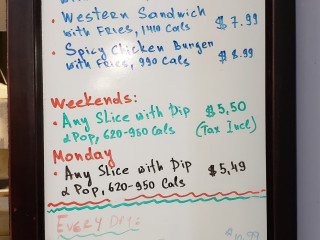 • Western Sandwich
with Fries, 1410 Cals $7.99
• Spicy Chicken Burger
with Fries, 990 Cals $8.99
Weekends:
• Any Slice with Dip $5,50
& Pop, 620-950 Cals (Tax Incl)
Monday
• Any Slice with Dip $5,49
& Pop, 620-950 Cals
Every Day: